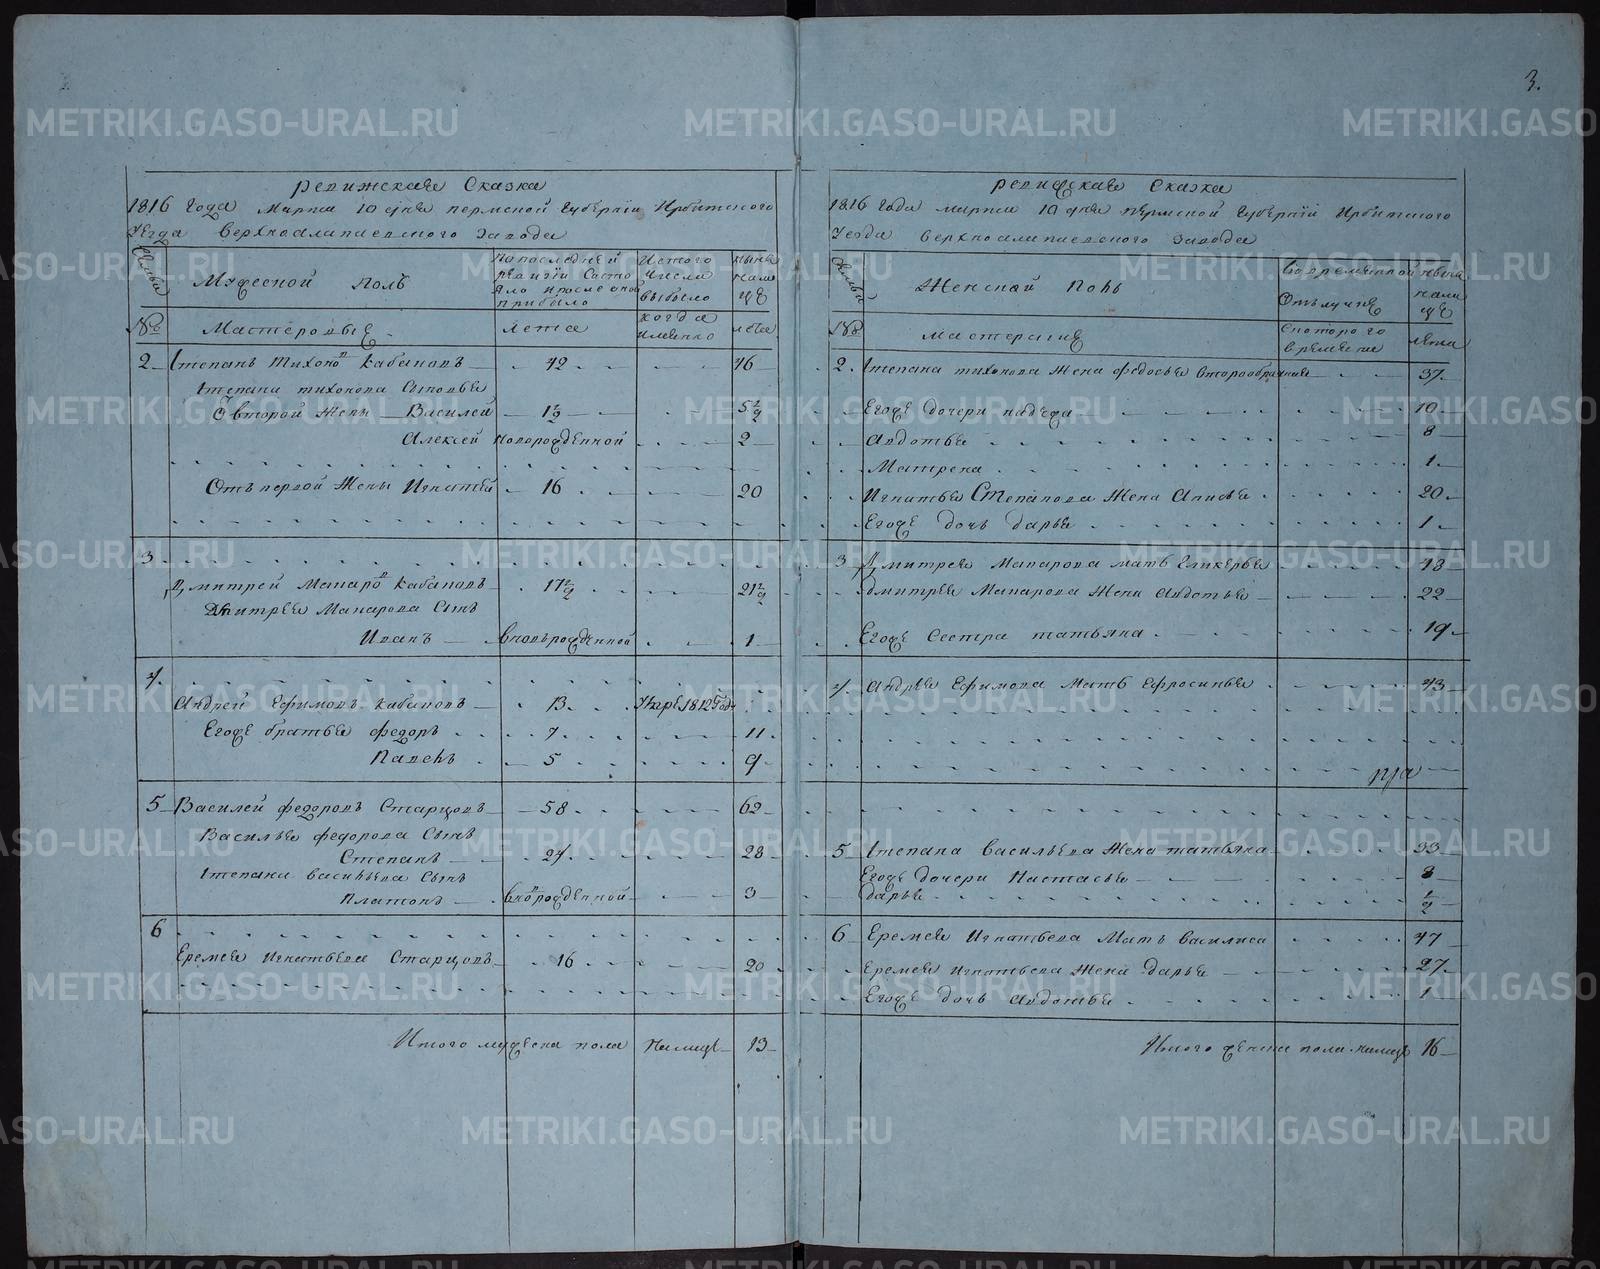 3.
Ревижская Сказка
1816 Года Марта 10 дня пермской Губернїи Ирбитского
Уезда Верхноалапаевского Завода
Семьи
Мужеской полъ
По последней ревизїи состояло и после оной прибыло
Из того числа выбыло
ныне на лице
№
Мастеровые
лета
когда именно
лета
2 Степанъ Тихоновъ Кабаковъ 42 46
Степана тихонова Сыновья
От второй Жены Василей 1½ 5½
Алексей новорожденной 2
Отъ первой Жены Игнатей 16 20
3
Дмитрей Макаровъ Кабаковъ 17½ 21½
Дмитрея Макарова Сынъ
Иванъ вновьрожденной 1
4.
Андрей Ефимовъ Кабаковъ 13 Умре 1812 Году
Егоже братья федоръ 7 11
Павелъ 5 9
5 Василей федоровъ Старцовъ 58 62
Василья федорова Сынъ
Степанъ 24 28
Степана васильева Сынъ
Платонъ вновьрожденной 3
6
Еремея Игнатьева Старцовъ 16 20
Итого мужеска пола налице 13
ревижская Сказка
1816 Года марта 10 дня пермской Губернїи Ирбитского
Уезда верхноалапаевского Завода
Семьи
Женской Полъ
Во временной отлучке
ныне на лице
№
мастерския
Скоторого времени
лета
2. Степана тихонова Жена федосья второобрачная 37
Егоже дочери надежда 10
Авдотья 8
Матрена 1
Игнатья Степанова Жена Анисья 20
Егоже дочь дарья 1
3 Дмитрея Макарова мать Гликерья 48
дмитрея Макарова Жена Авдотья 22
Егоже Сестра татьяна 19
4. Андрея Ефимова Мать Ефросинья 43
5 Степана васильева Жена татьяна 33
Егоже дочери Настасья 8
дарья ½
6 Еремея Игнатьева Мать василиса 47
Еремея игнатьева Жена дарья 27
Егоже дочь авдотья 1
Итого женска пола налице 16
METRIKI.GASO-URAL.RU